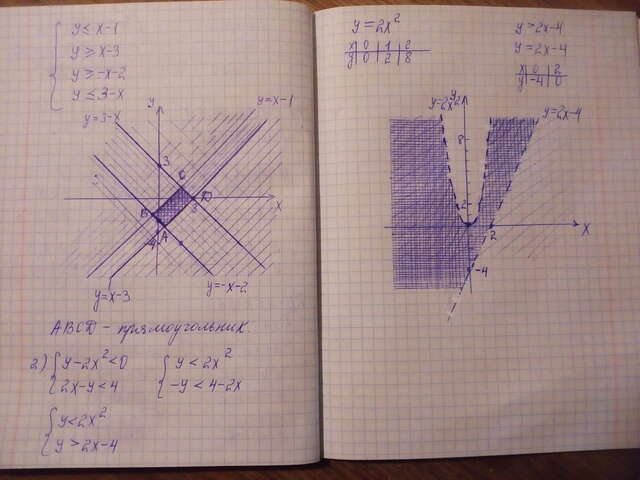 y ≤ x-1
y ≥ x-3
y ≥ -x-2
y ≤ 3-x
y=3-x
y
y=x-1
3
C
D
B
3
x
A
y=x-3
y=-x-2
ABCD - прямоугольник.
2) { y-2x²<0
2x-y<4
{ y<2x²
-y<4-2x
{ y<2x²
y>2x-4
y=2x²
x | 0 | 1 | 2
y | 0 | 2 | 8
y>2x-4
y=2x-4
x | 0 | 2
y | -4 | 0
y=2x²
y
y=2x-4
8
2
2
x
-4